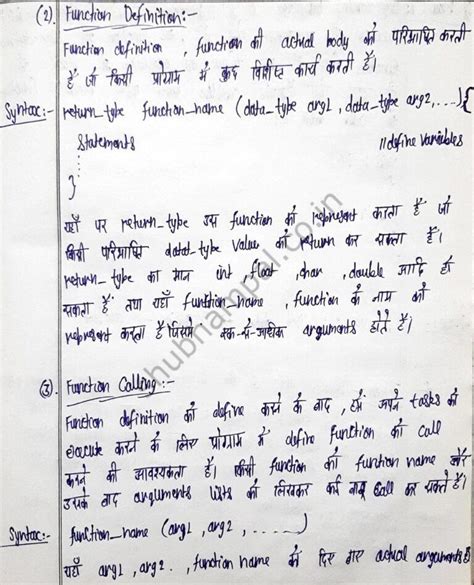 (2) Function Definition:-
Function definition, function की actual body को परिभाषित करती
है जो किसी प्रोग्राम में कुछ विशिष्ट कार्य करती है।
Syntax:- return_type function_name (data_type arg1, data_type arg2,...){
Statements //define variables
⋮
}
यहाँ पर return_type उस function को represent करता है जो
किसी परिभाषित data_type value को return कर सकता है।
return_type का मान int, float, char, double आदि हो
सकता है तथा यहाँ function_name, function के नाम को
represent करता है जिसमें एक-से-अधिक arguments होते है।
(3) Function Calling:-
Function definition को define करने के बाद, हमें अपने tasks को
execute करने के लिए प्रोग्राम में define function को call
करने की आवश्यकता है। किसी function को function name और
उसके बाद arguments lists को लिखकर कई बार call कर सकते है।
Syntax:- function_name (arg1, arg2, ......)
यहाँ arg1, arg2., function name को दिए गए actual arguments है
shubhampal.co.in